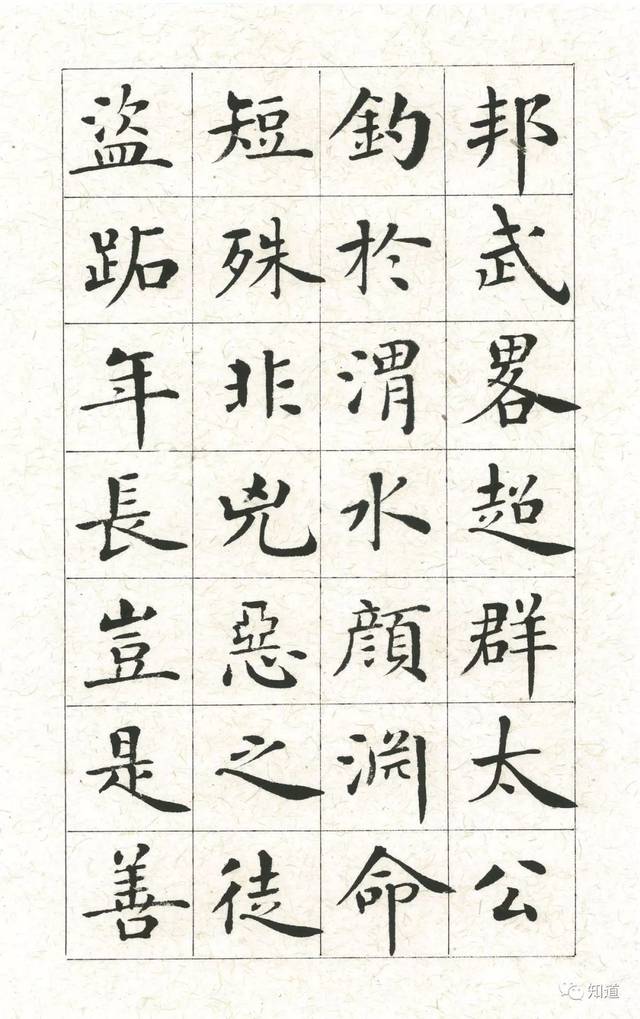 邦武畧超群太公
釣於渭水顔淵命
短殊非兇惡之徒
盜跖年長豈是善
知道